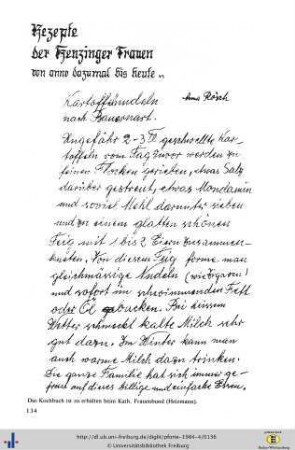 Rezepte
der Kenzinger Frauen
von anno dazumal bis heute
Kartoffelnudeln Anna Rösch
nach Bauernart.
Ungefähr 2-3 ℔ geschwellte Kar-
toffeln vom Tag zuvor werden zu
feinen Flocken gerieben, etwas Salz
darüber gestreut, etwas Mondamin
und soviel Mehl darunter sieben
und zu einem glatten schönen
Teig mit 1 bis 2 Eiern zusammen-
kneten. Von diesem Teig forme man
gleichmässige Nudeln (wie Zigarren)
und sofort im schwimmenden Fett
oder Öl gebacken. Bei heissem
Wetter schmeckt kalte Milch sehr
gut dazu. Im Winter kann man
auch warme Milch dazu trinken.
Die ganze Familie hat sich immer ge-
freut auf dieses billige und einfache Essen.
Das Kochbuch ist zu erhalten beim Kath. Frauenbund (Heizmann).
134
http://dl.ub.uni-freiburg.de/diglit/pforte-1984-4/0136
© Universitätsbibliothek Freiburg